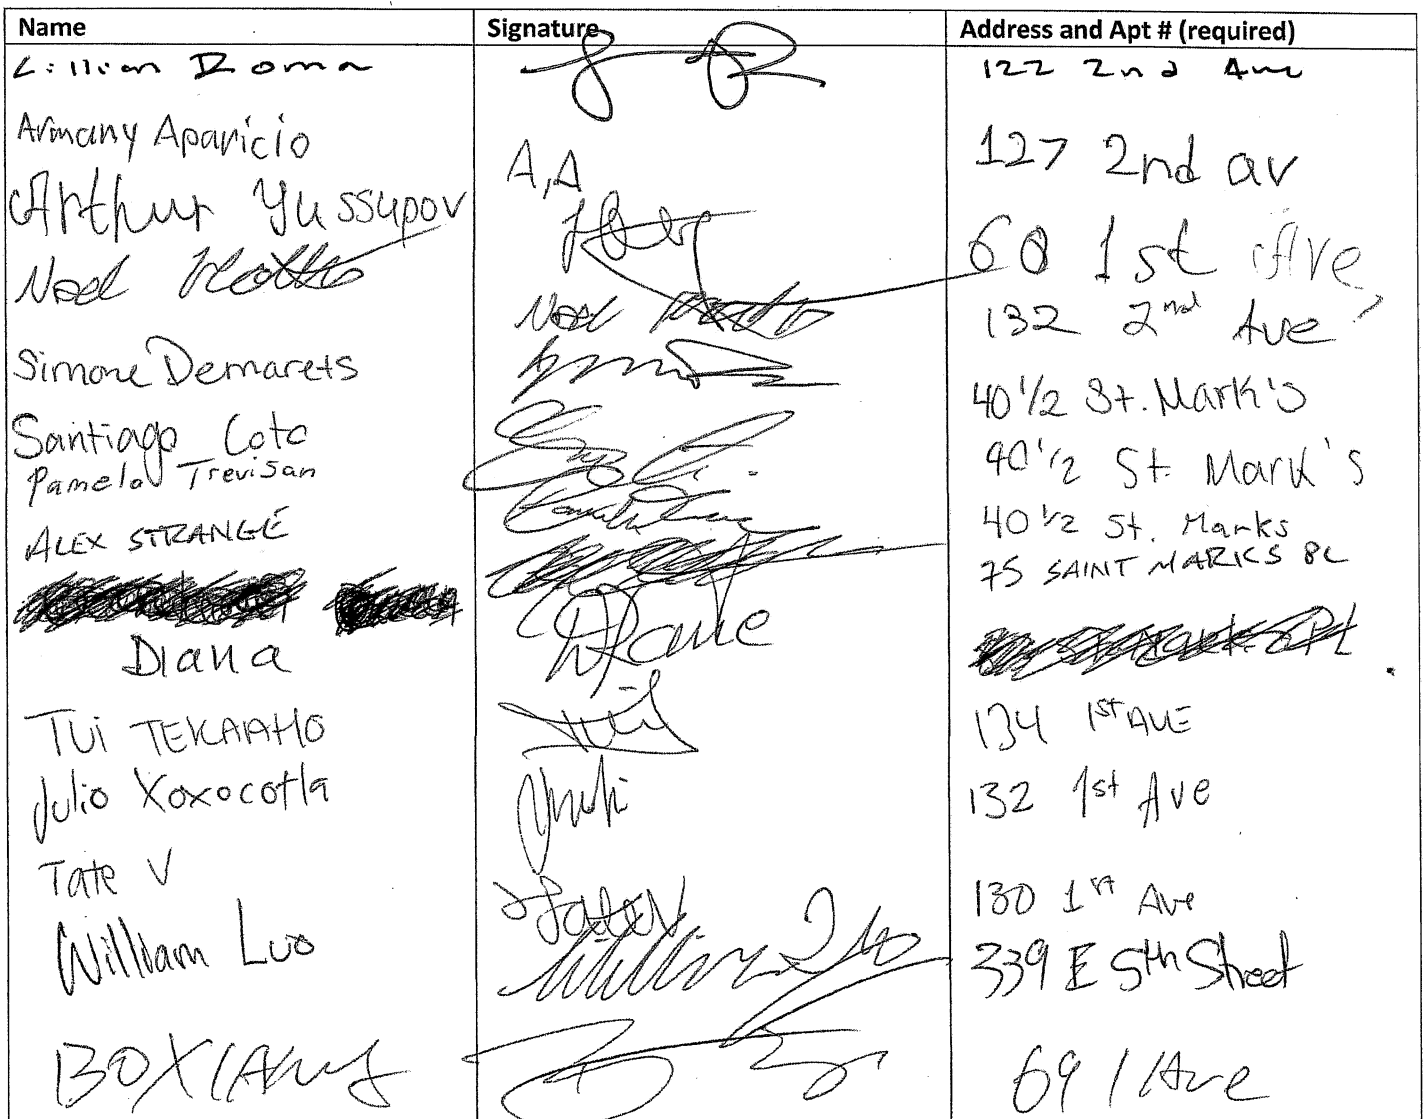 Name Signature Address and Apt # (required)
Lillian Roma 122 2nd Ave
Armany Aparicio A,A 127 2nd av
Arthur Yussupov 60 1st Ave,
Noel Noel 132 2nd Ave
Simone Demarets 40 1/2 St. Mark's
Santiago Coto 40 1/2 St. Mark's
Pamela Trevisan 40 1/2 St. Marks
ALEX STRANGE 75 SAINT MARKS PL
Diana Diane
TUi TEKAAHO Tui 134 1st AVE
Julio Xoxocotla 132 1st Ave
Tate V Tate V 130 1st Ave
William Luo William Luo 339 E 5th Street
69 1 Ave